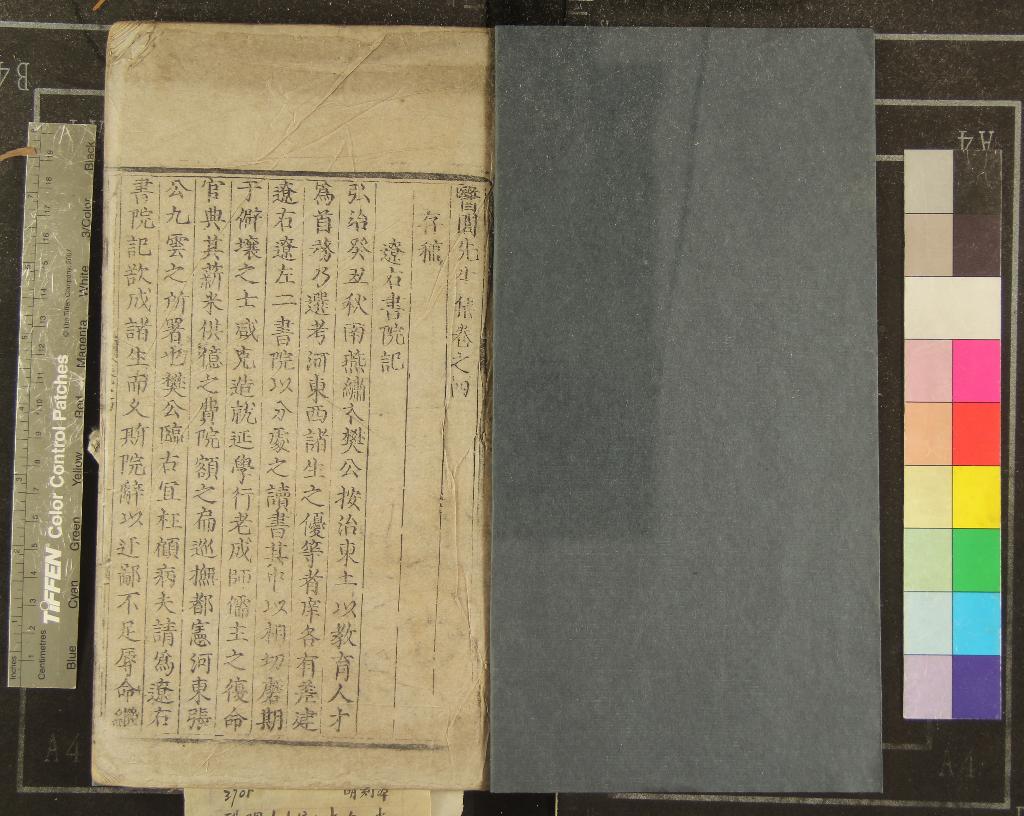 醫閭先生集卷之四
存稿
遼右書院記
弘治癸丑秋南燕繡衣樊公按治東土以教育人才
為首務乃選考河東西諸生之優等者庠各有差建
遼右遼左二書院以分處之讀書其中以相切磨期
于僻壤之士咸克造就延學行老成師儒主之復命
官典其薪米供億之費院額之扁巡撫都憲河東張
公九雲之所署也樊公臨右宜枉顧病夫請為遼右
書院記欲成諸生而久斯院辭以迂鄙不足辱命繼
TIFFEN Color Control Patches
© The Tiffen Company, 2007
Inches
Centimetres
Blue
Cyan
Green
Yellow
Red
Magenta
White
3/Color
Black
B4
A4
A4
A4
3705
明刻本